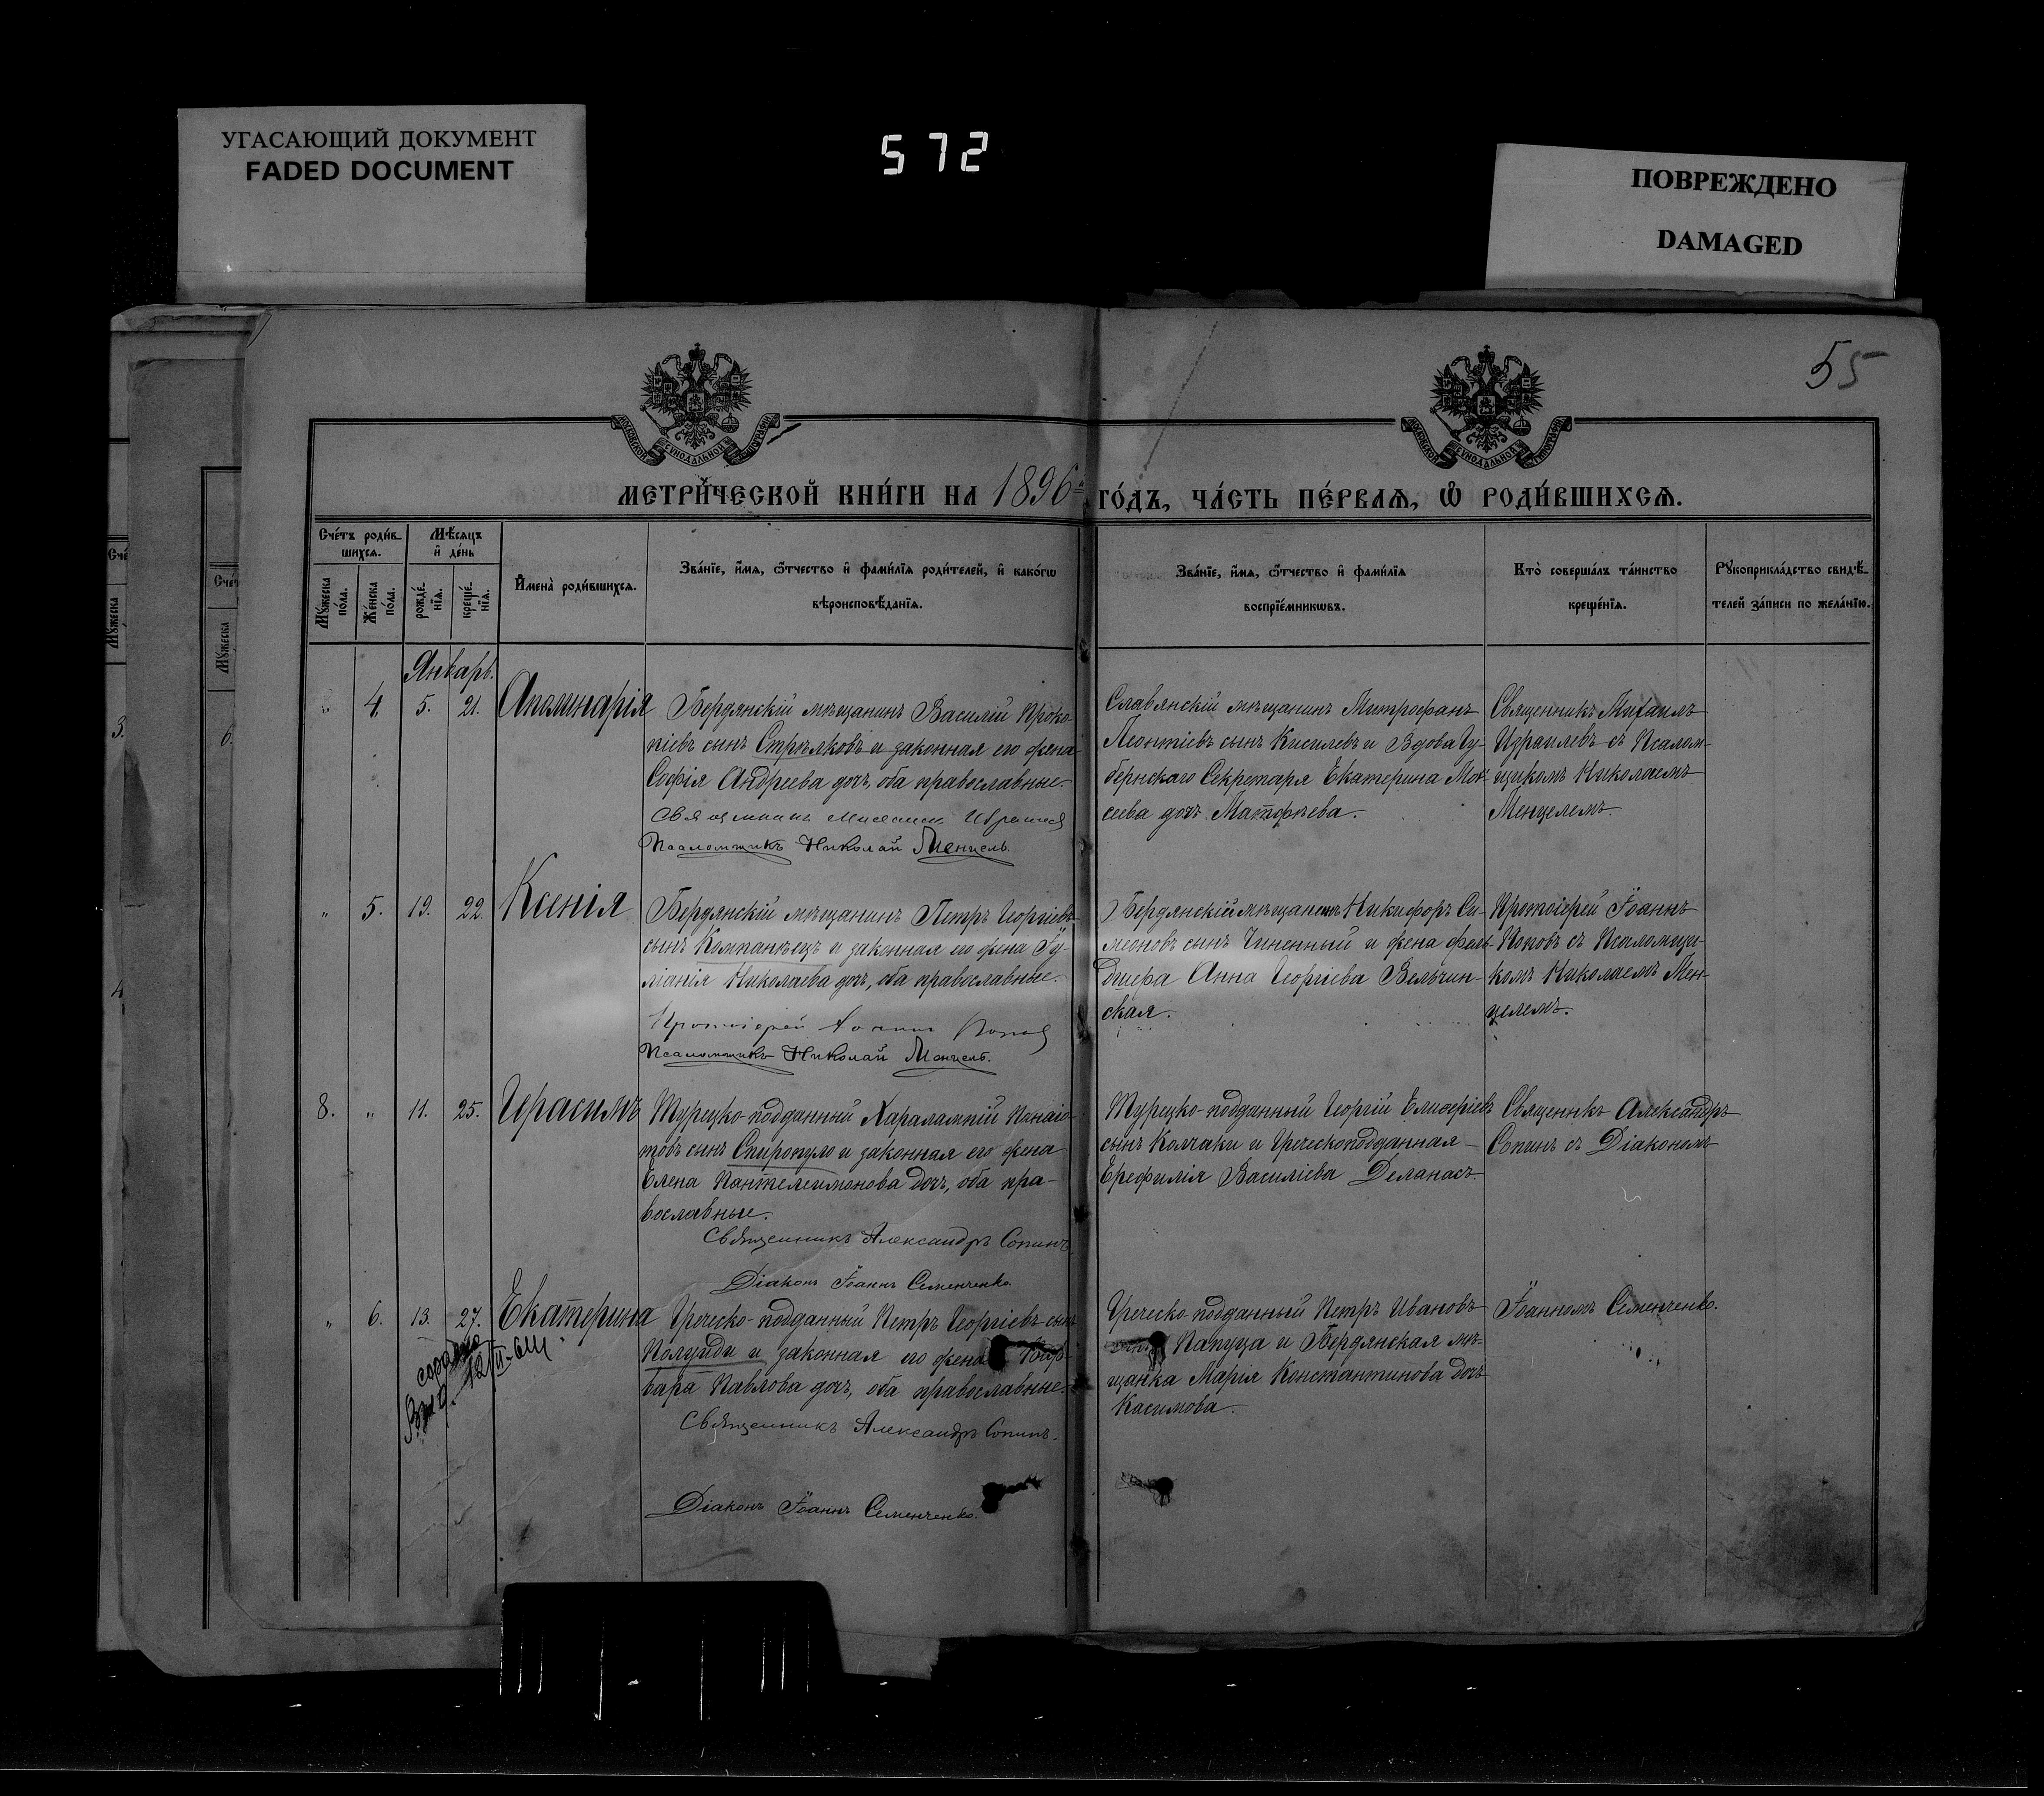 УГАСАЮЩИЙ ДОКУМЕНТ
FADED DOCUMENT
572
ПОВРЕЖДЕНО
DAMAGED
55
МЕТРИ́ЧЕСКОЙ КНИ́ГИ НА 1896 ГО́ДЪ, ЧА́СТЬ ПЕ́РВАѦ, Ѽ РОДИ́ВШИХСѦ.
Сче́тъ роди́в-
шихсѧ.
Мѣ́сѧцъ
и҆ де́нь
Мꙋ́жеска по́ла.
Же́нска по́ла.
рожде́-
нїѧ.
креще́-
нїѧ.
И҆мена̀ роди́вшихсѧ.
Зва́нїе, и҆́мѧ, ѻ҆́тчество и҆ фами́лїѧ роди́телей, и҆ како́гѡ
вѣроисповѣ́данїѧ.
Зва́нїе, и҆́мѧ, ѻ҆́тчество и҆ фами́лїѧ
воспрїе́мникѡвъ.
Кто̀ соверша́лъ та́инство
креще́нїѧ.
Рꙋкоприкла́дство свидѣ́-
телей за́писи по жела́нїю.
Январь.
" 4. 5. 21. Аполинарія
Бердянскій мѣщанинъ Василій Проко-
піевъ сынъ Стрѣлковъ и законная его жена
Софія Андреева дочь, оба православные.
Священникъ Михаилъ Израилев
Псаломщикъ Николай Менцель.
Славянскій мѣщанинъ Митрофанъ
Леонтіевъ сынъ Киселевъ и Вдова Гу-
бернскаго Секретаря Екатерина Мои-
сеева дочь Матфѣева.
Священникъ Михаилъ
Израилевъ съ Псалом-
щикомъ Николаемъ
Менцелемъ.
" 5. 19. 22. Ксенія
Бердянскій мѣщанинъ Петръ Георгіевъ
сынъ Компанѣецъ и законная его жена Іу-
ліанія Николаева дочь, оба православные.
Протоіерей Іоаннъ Попов
Псаломщикъ Николай Менцель.
Бердянскій мѣщанинъ Никифоръ Си-
меоновъ сынъ Чиненный и жена фель-
дшера Анна Георгіева Вельчин-
ская.
Протоіерей Іоаннъ
Поповъ съ Псаломщи-
комъ Николаемъ Мен-
целемъ.
8. " 11. 25. Герасимъ
Турецко-подданный Харалампій Панаіо-
товъ сынъ Спиропуло и законная его жена
Елена Пантелеимонова дочь, оба пра-
вославные.
Священникъ Александръ Сопинъ
Діаконъ Іоаннъ Семенченко.
Турецко-подданный Георгій Елиферіевъ
сынъ Колчаки и Греческоподданная
Ерефилія Василіева Деланасъ.
Священникъ Александръ
Сопинъ съ Діакономъ
" 6. 13. 27. Екатерина
Греческо-подданный Петръ Георгіевъ сынъ
Полуиди и законная его жена Вар-
вара Павлова дочь, оба православные.
Священникъ Александръ Сопинъ.
Діаконъ Іоаннъ Семенченко.
Греческо подданный Петръ Ивановъ
Папуца и Бердянская мѣ-
щанка Марія Константинова дочь
Касимова.
Іоанномъ Семенченко.